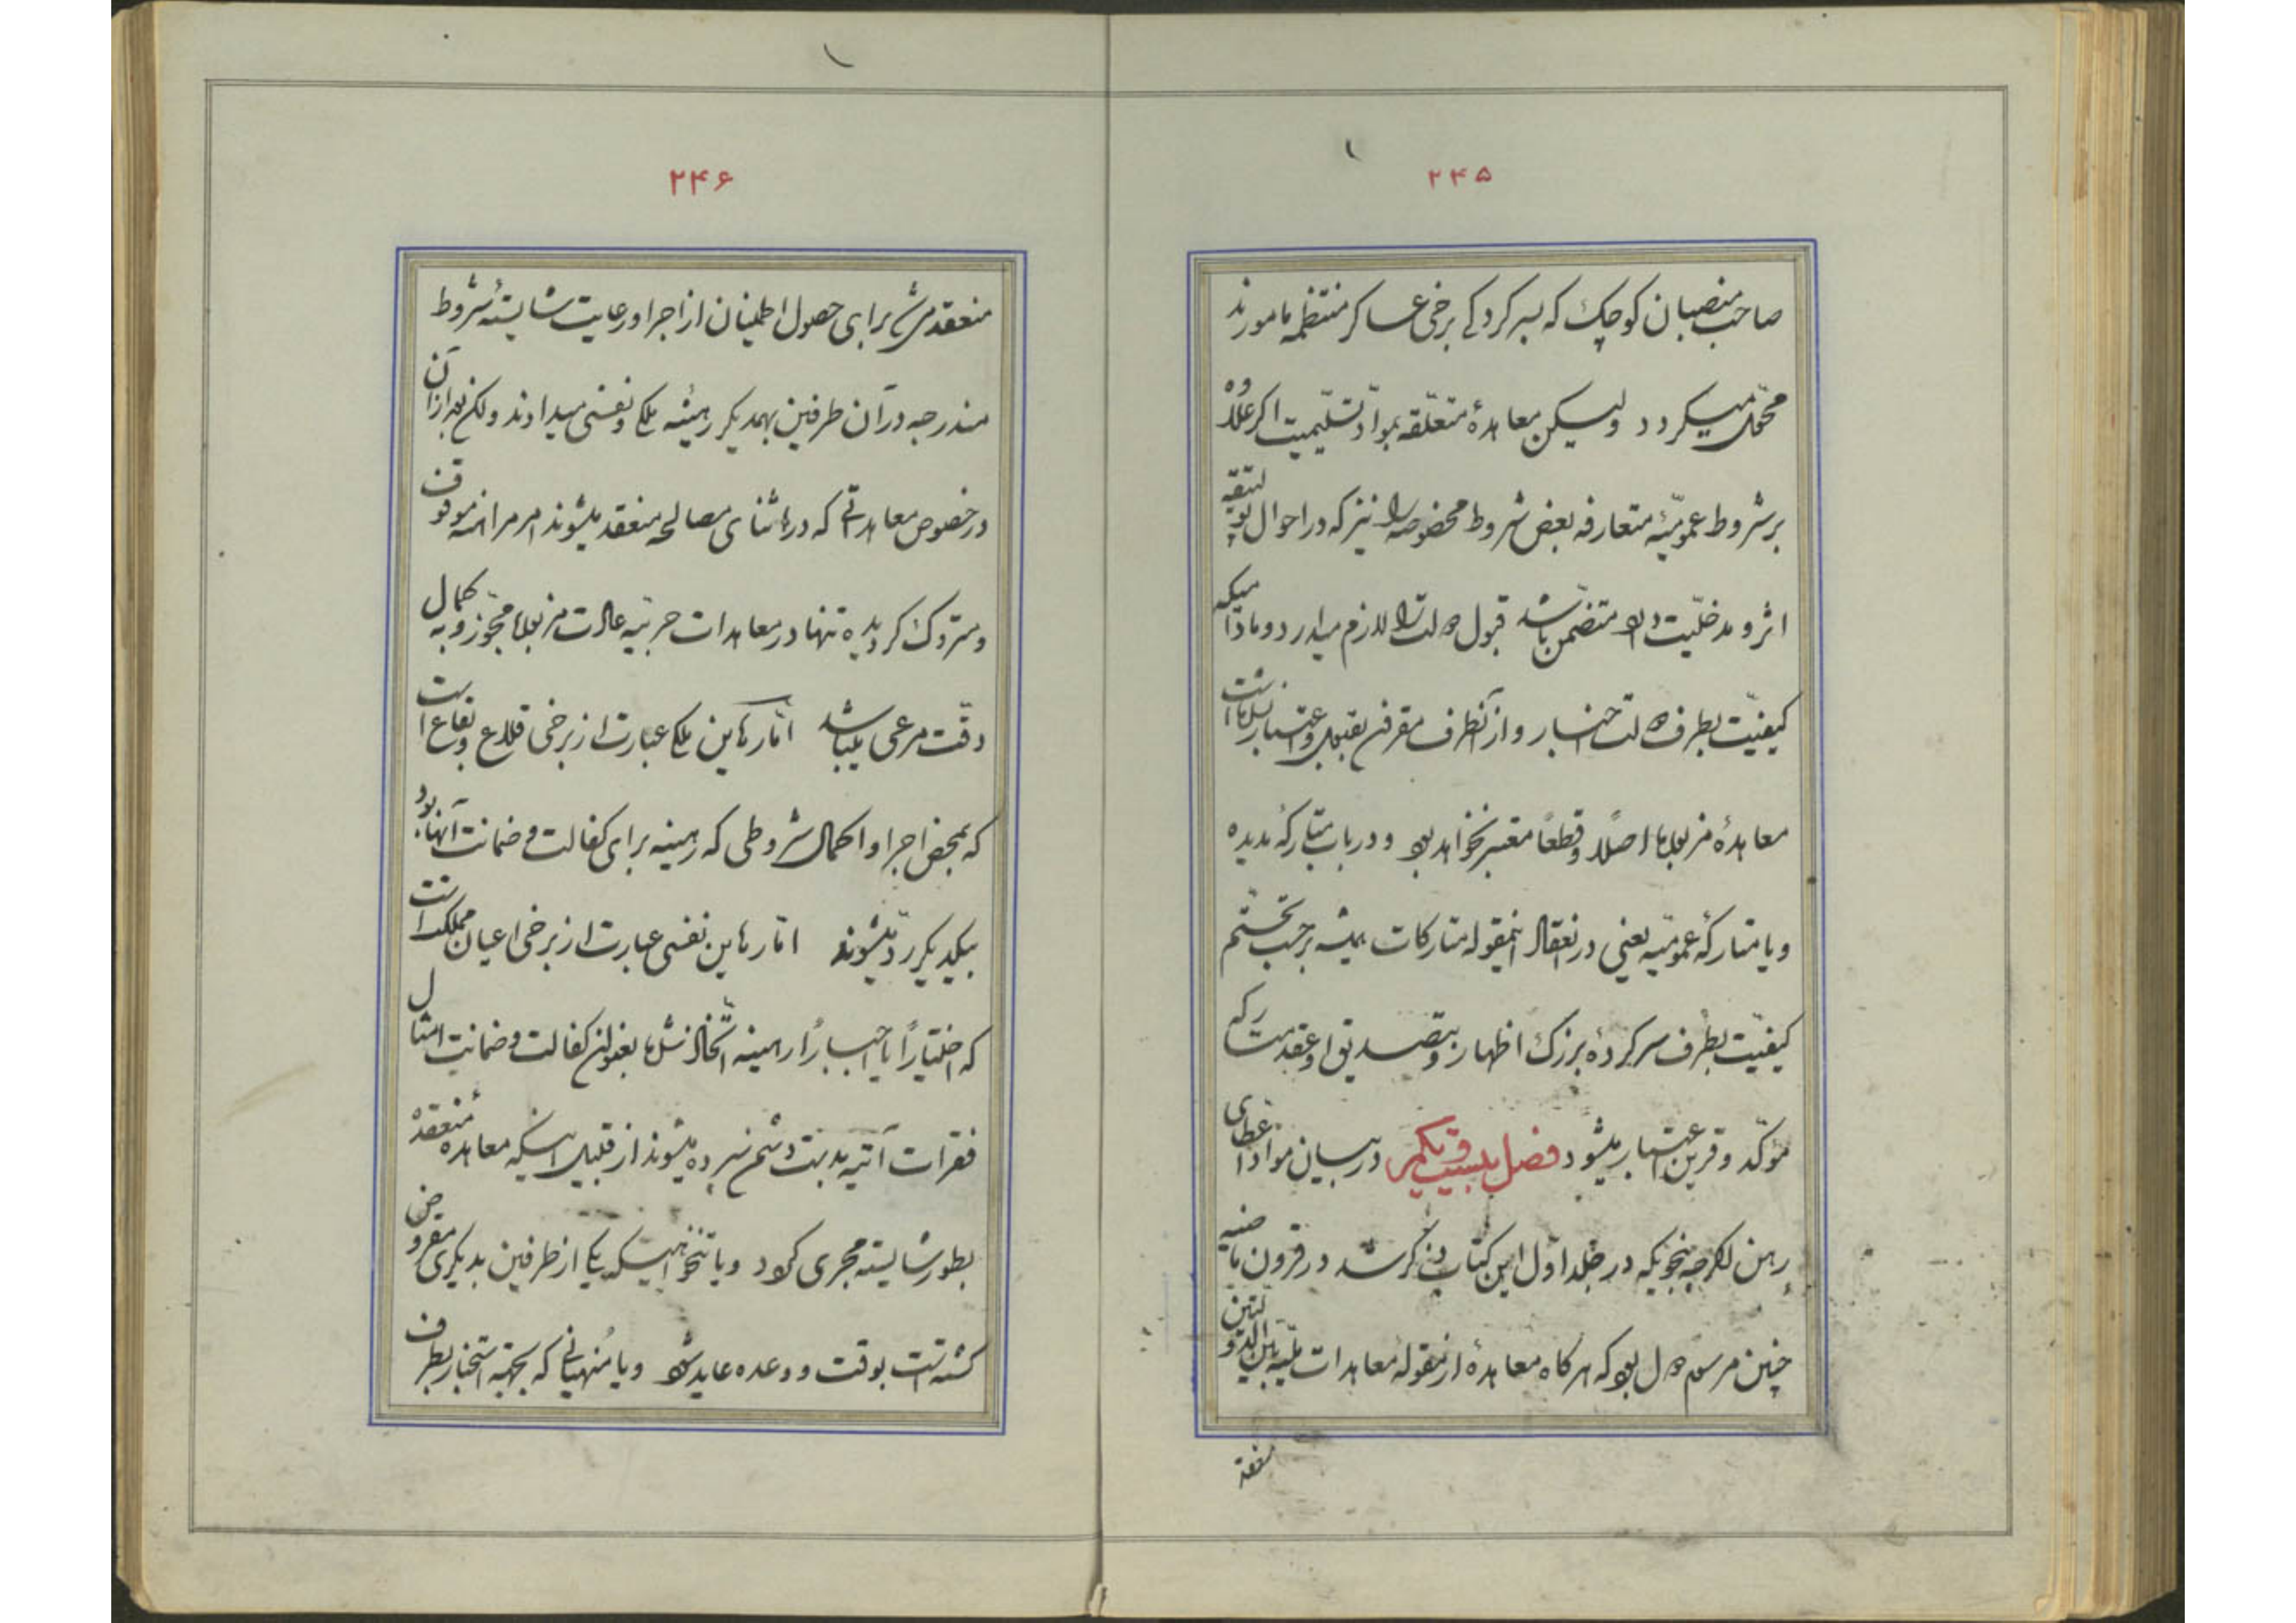 ۲۴۵
صاحب‌منصبان کوچک که بسرکردگی برخی عساکر منتظمه مامورند
محمّل میکردد ولیکن معاهدۀ متعلّقه بموادّ تسلیمیت اکر علاوه
بر شروط عمومیّۀ متعارفه بعض شروط مخصوصه را نیز که در احوال پولتیقه
اثر و مدخلیّت دارد متضمن باشد قبول دولت را لازم میدارد و مادامیکه
کیفیّت بطرف دولت اخبار و از آنطرف مقرون بقبول و اعتبار نشده است
معاهدۀ مزبوره اصلاً و قطعاً معتبر نخواهد بود و در باب متارکۀ مدیده
و یا متارکۀ عمومیّه یعنی در انعقاد اینمقوله متارکات همیشه برحسب تحتّم
کیفیّت بطرف سرکردۀ بزرک اظهار و بتصدیق او عقد متارکه
مؤکّد و قرین اعتبار میشود فصل بیست و یکم در بیان مواد اعطای
رهن اکرچه بنحویکه در جلد اوّل این کتاب ذکر شد در قرون ماضیه
چنین مرسوم دول بود که هرکاه معاهدۀ از مقولۀ معاهدات ملّیّه بین الدولتین
منعقد
۲۴۶
منعقد میشد برای حصول اطمینان از اجرا و رعایت شایستۀ شروط
مندرجه در آن طرفین بهمدیکر رهینۀ ملکی و نفسی میدادند ولکن بعد از آن
در خصوص معاهداتی که در اثنای مصالحه منعقد میشوند امر مراهنه موقوف
و متروک کردیده تنها در معاهدات حربیّه عادت مزبوره مجوّز و به کمال
دقّت مرعی میباشد امّا رهاین ملکی عبارت از برخی قلاع و بقاع است
که بمحض اجرا و اکمال شروطی که رهینه برای کفالت و ضمانت آنها بود
بیکدیکر ردّ میشوند امّا رهاین نفسی عبارت از برخی اعیان مملکت است
که اختیاراً یا اجباراً رهینه اتّخاذ شده بعنوان کفالت و ضمانت امثال
فقرات آتیه بدست دشمن سپرده میشوند از قبیل اینکه معاهده منعقدۀ
بطور شایسته مجری کردد و یا تنخواهیکه یکی از طرفین بدیکری مقروض
کشته است بوقت و وعده عاید شود و یا مُنهیانی که بجهة استخبار بطرف